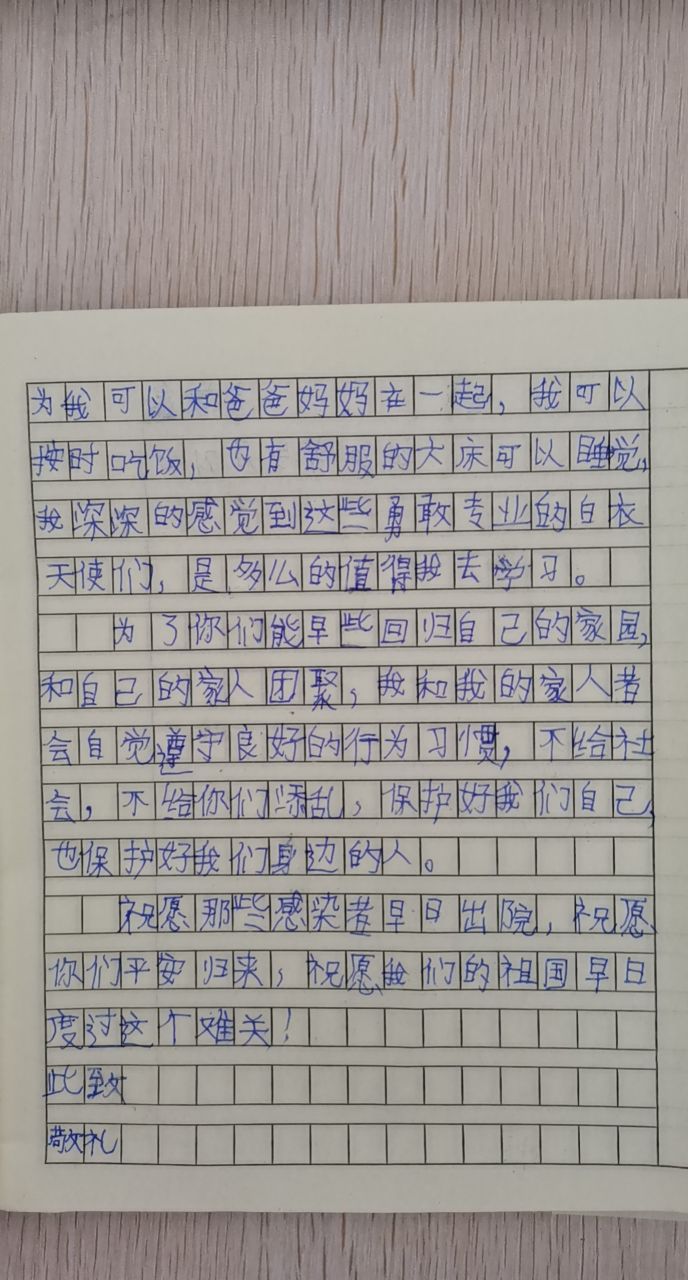 为我可以和爸爸妈妈在一起，我可以
按时吃饭，也有舒服的大床可以睡觉，
我深深的感觉到这些勇敢专业的白衣
天使们，是多么的值得我去学习。
为了你们能早些回归自己的家园，
和自己的家人团聚，我和我的家人者
会自觉遵守良好的行为习惯，不给社
会，不给你们添乱，保护好我们自己，
也保护好我们身边的人。
祝愿那些感染者早日出院，祝愿
你们平安归来，祝愿我们的祖国早日
度过这个难关！
此致
敬礼